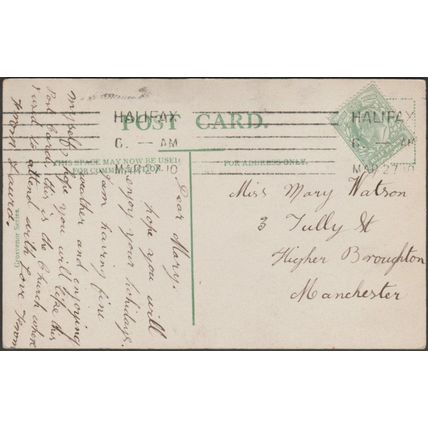 HALIFAX
6. — AM
MAR 27 10
HALIFAX
6. — AM
MAR 27 10
POST CARD.
THIS SPACE MAY NOW BE USED
FOR COMMUNICATION
FOR ADDRESS ONLY.
Miss Mary Watson
3 Tully St
Higher Broughton
Manchester
Dear Mary,
hope you will
enjoy your holidays.
I am having fine
weather and enjoying
myself hope you will like this
Post card, this is the Church where
I used to attend with Love from